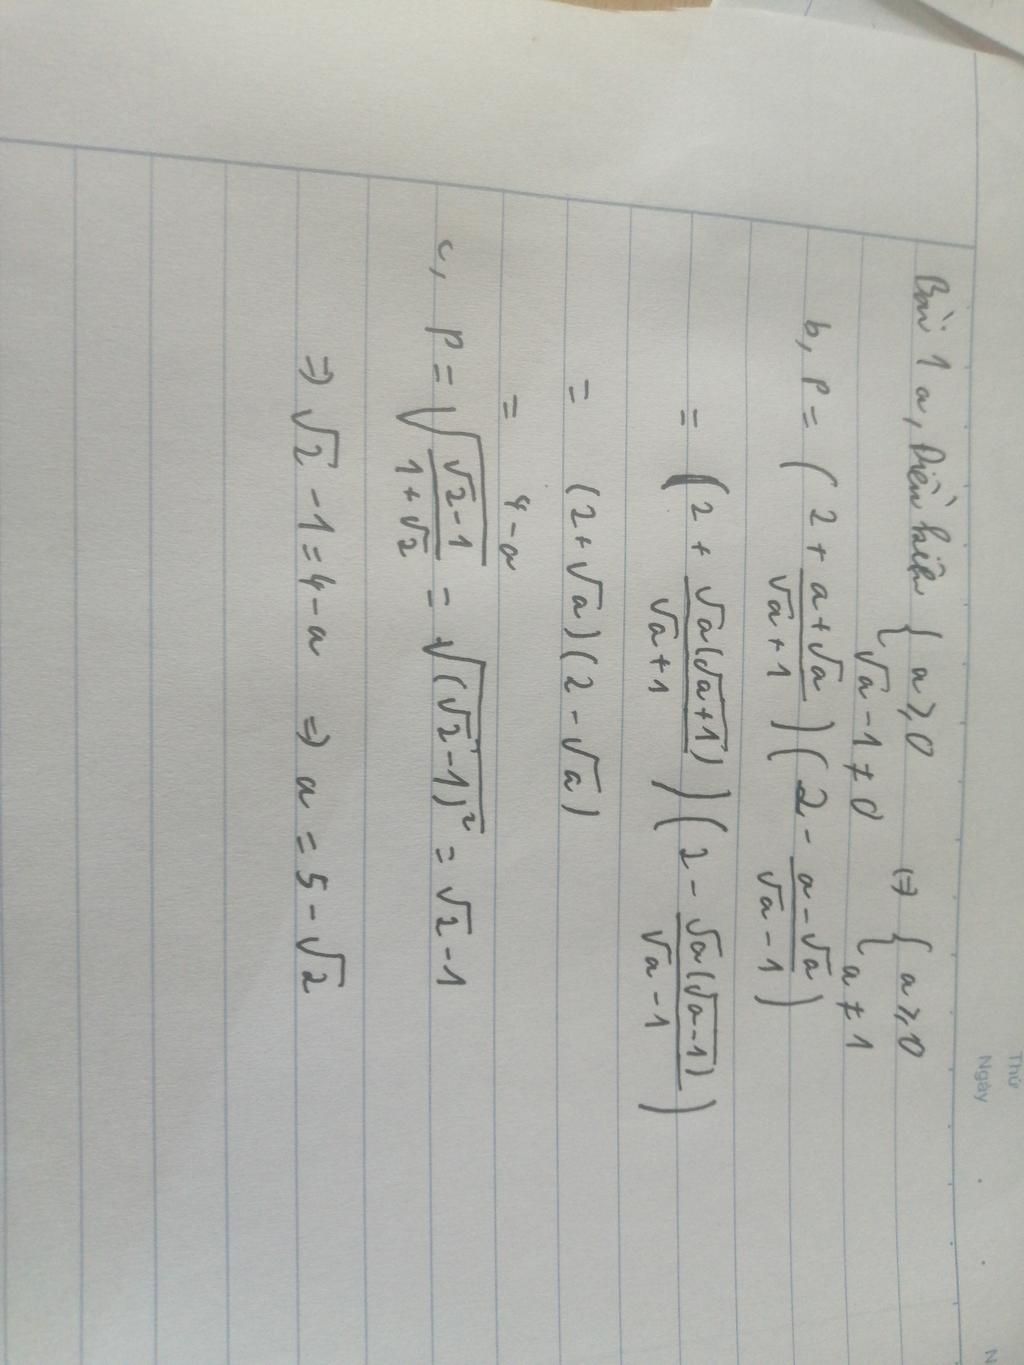 Thứ
Ngày
N
Bài 1 a, Điều kiện { a ≥ 0 ⇔ { a ≥ 0
√a - 1 ≠ 0 a ≠ 1
b, P = ( 2 + (a + √a)/(√a + 1) ) ( 2 - (a - √a)/(√a - 1) )
= ( 2 + (√a(√a + 1))/(√a + 1) ) ( 2 - (√a(√a - 1))/(√a - 1) )
= (2 + √a)(2 - √a)
= 4 - a
c, P = √((√2 - 1)/(1 + √2)) = √((√2 - 1)²) = √2 - 1
⇒ √2 - 1 = 4 - a ⇒ a = 5 - √2